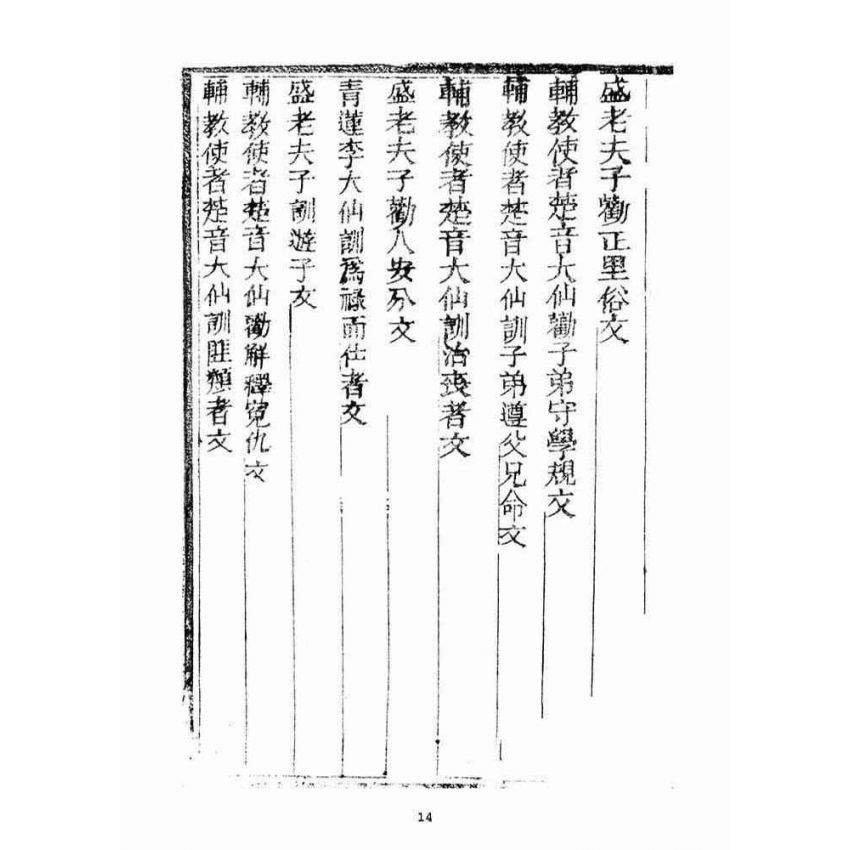 盛老夫子勸正里俗文
輔教使者楚音大仙勸子弟守學規文
輔教使者楚音大仙訓子弟遵父兄命文
輔教使者楚音大仙訓治喪者文
盛老夫子勸人安分文
青蓮李大仙訓為祿而仕者文
盛老夫子訓遊子文
輔教使者楚音大仙勸解釋寃仇文
輔教使者楚音大仙訓匪類者文
14